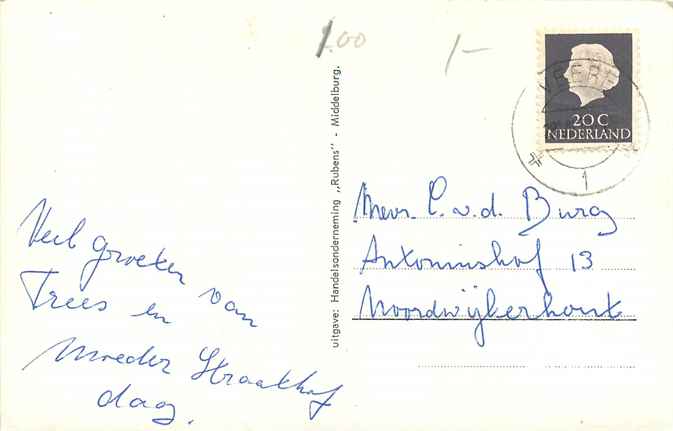 1,00
/-
VEERE
20C
NEDERLAND
1
uitgave: Handelsonderneming „Rubens" - Middelburg.
Veel groeten van
Trees en
Moeder Straathof
dag.
Mevr. C. v.d. Burg
Antoniushof 13
Noordwijkerhout